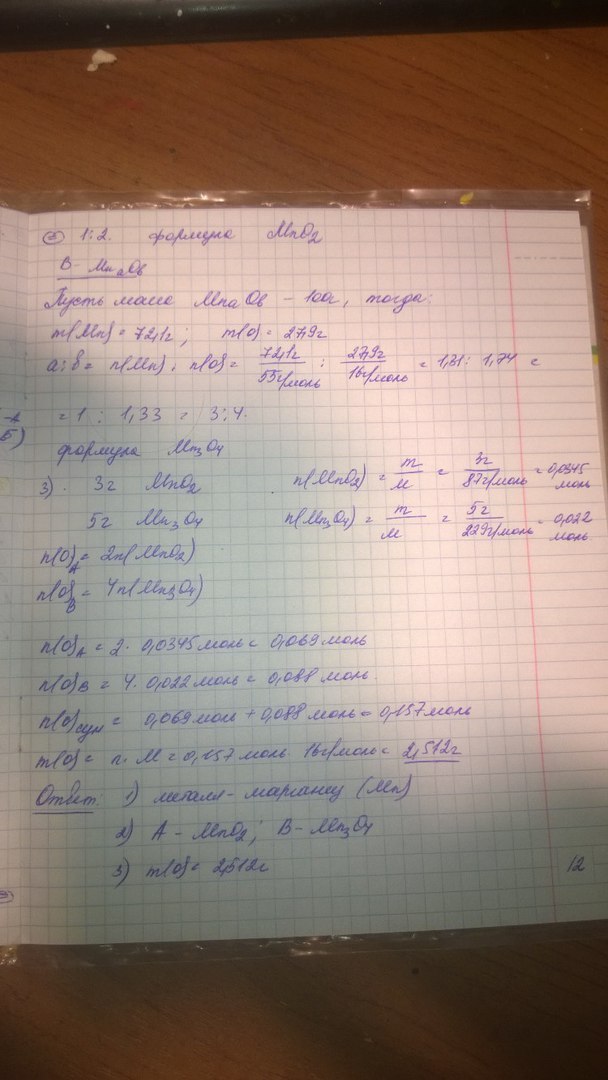 = 1:2. формула MnO₂
B - MnₐOb
Пусть масса MnₐOb - 100г, тогда:
m(Mn) = 72,1г; m(O) = 27,9г
a:b = n(Mn) : n(O) = 72,1г/55г/моль : 27,9г/16г/моль = 1,31 : 1,74 =
= 1 : 1,33 = 3:4.
формула Mn₃O₄
3). 3г MnO₂ n(MnO₂) = m/M = 3г/87г/моль = 0,0345 моль
5г Mn₃O₄ n(Mn₃O₄) = m/M = 5г/229г/моль = 0,022 моль
n(O)A = 2n(MnO₂)
n(O)B = 4n(Mn₃O₄)
n(O)A = 2 · 0,0345 моль = 0,069 моль
n(O)B = 4 · 0,022 моль = 0,088 моль.
n(O)сум = 0,069 моль + 0,088 моль = 0,157 моль
m(O) = n · M = 0,157 моль · 16г/моль = 2,512г
Ответ: 1) металл - марганец (Mn)
2) A - MnO₂; B - Mn₃O₄
3) m(O) = 2,512г
12